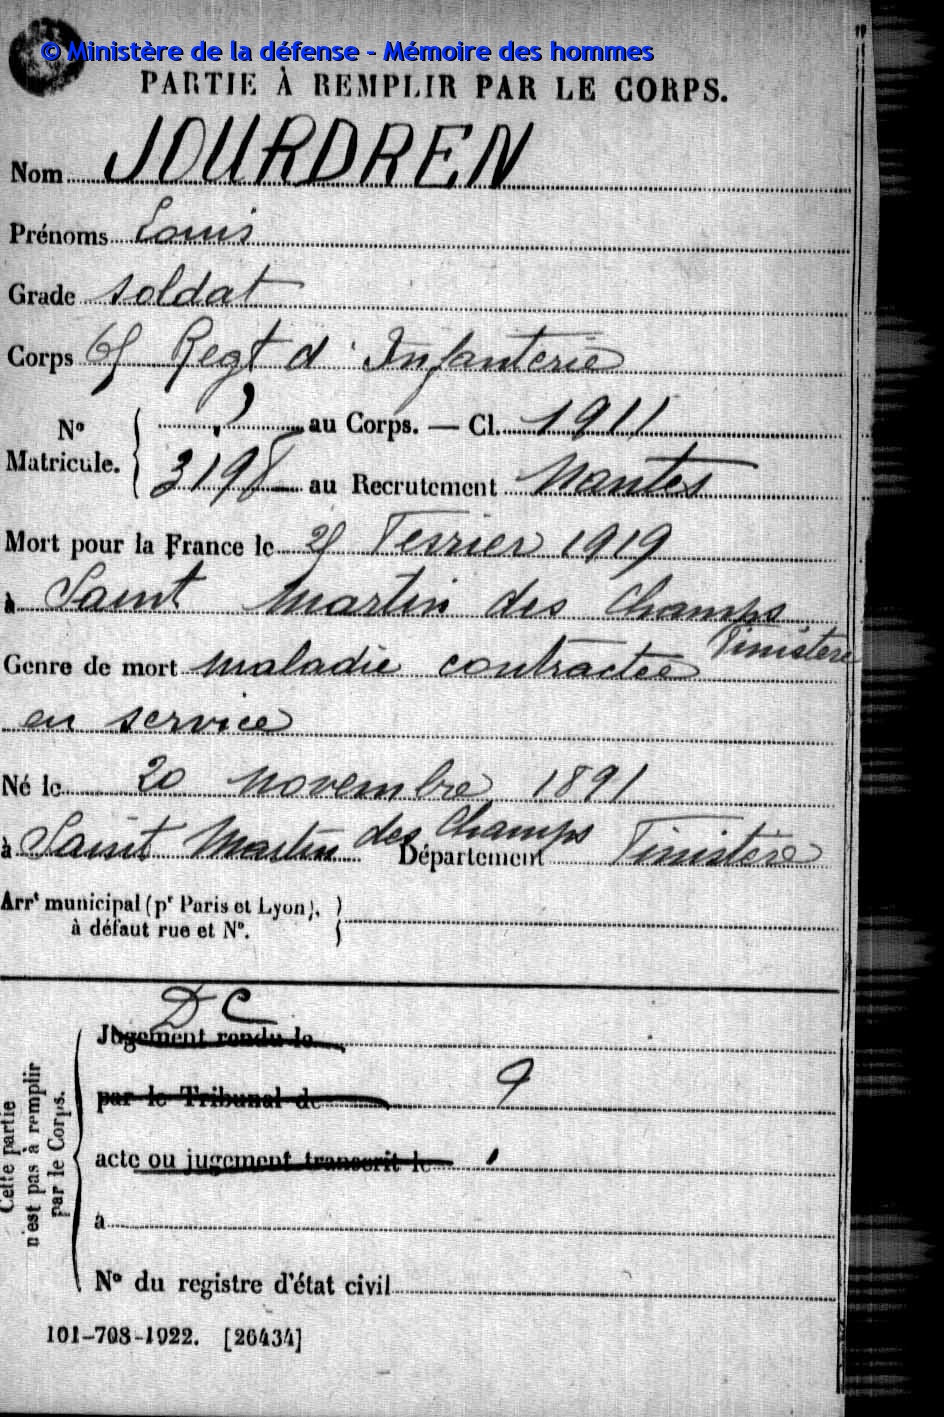 © Ministère de la défense - Mémoire des hommes
PARTIE À REMPLIR PAR LE CORPS.
Nom JOURDREN
Prénoms Louis
Grade soldat
Corps 65 Regt d'Infanterie
N° Matricule. { ? au Corps. — Cl. 1911
3198 au Recrutement Nantes
Mort pour la France le Fevrier 1919
à Saint Martin des Champs
Finistère
Genre de mort maladie contractée
en service
Né le 20 novembre 1891
à Saint Martin des Champs Département Finistère
Arrt municipal (pr Paris et Lyon), }
à défaut rue et N°.
DC
Jugement rendu le
par le Tribunal de
acte ou jugement transcrit le
à
N° du registre d'état civil
Cette partie
n'est pas à remplir
par le Corps.
101-708-1922. [26434]